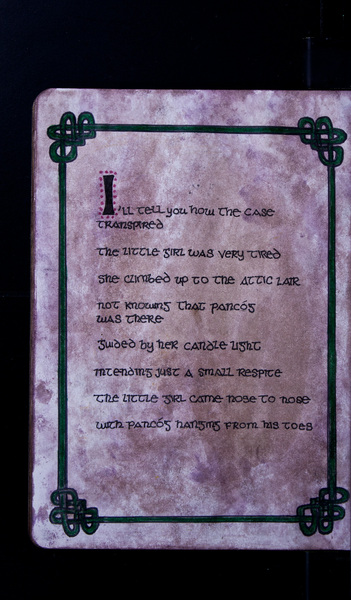 I'll tell you how the case
transpired
the little girl was very tired
she climbed up to the attic lair
not knowing that pancóg
was there
guided by her candle light
intending just a small respite
the little girl came nose to nose
with pancóg hanging from his toes